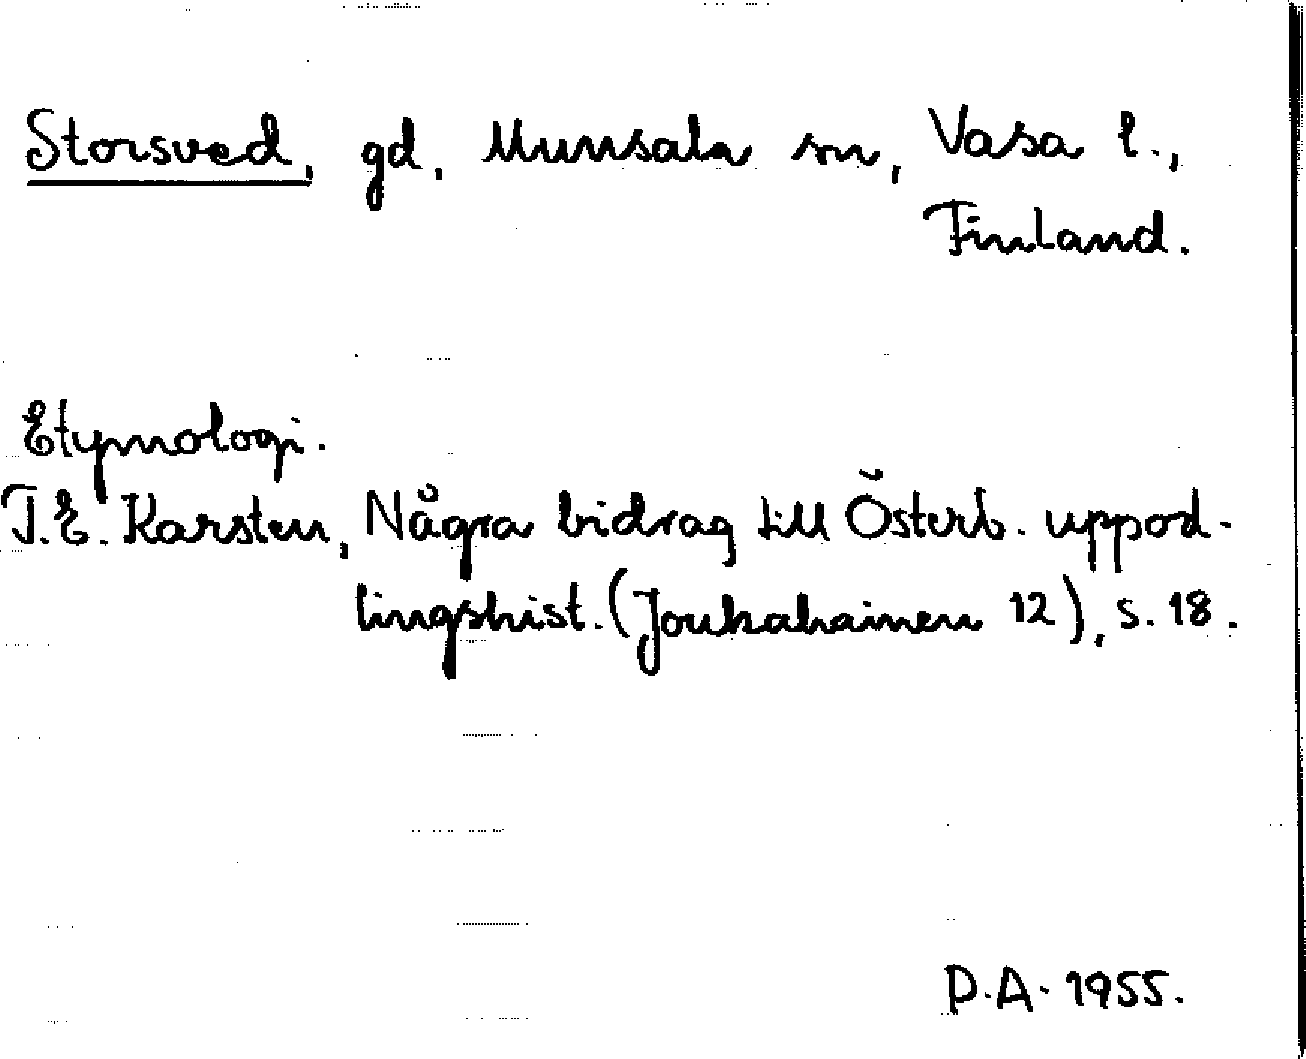 Storsved, gd, Munsala sn, Vasa l.,
Finland.
Etymologi.
T.E. Karsten, Några bidrag till Österb. uppod-
lingshist. (Joukahainen 12), s. 18.
P.A. 1955.